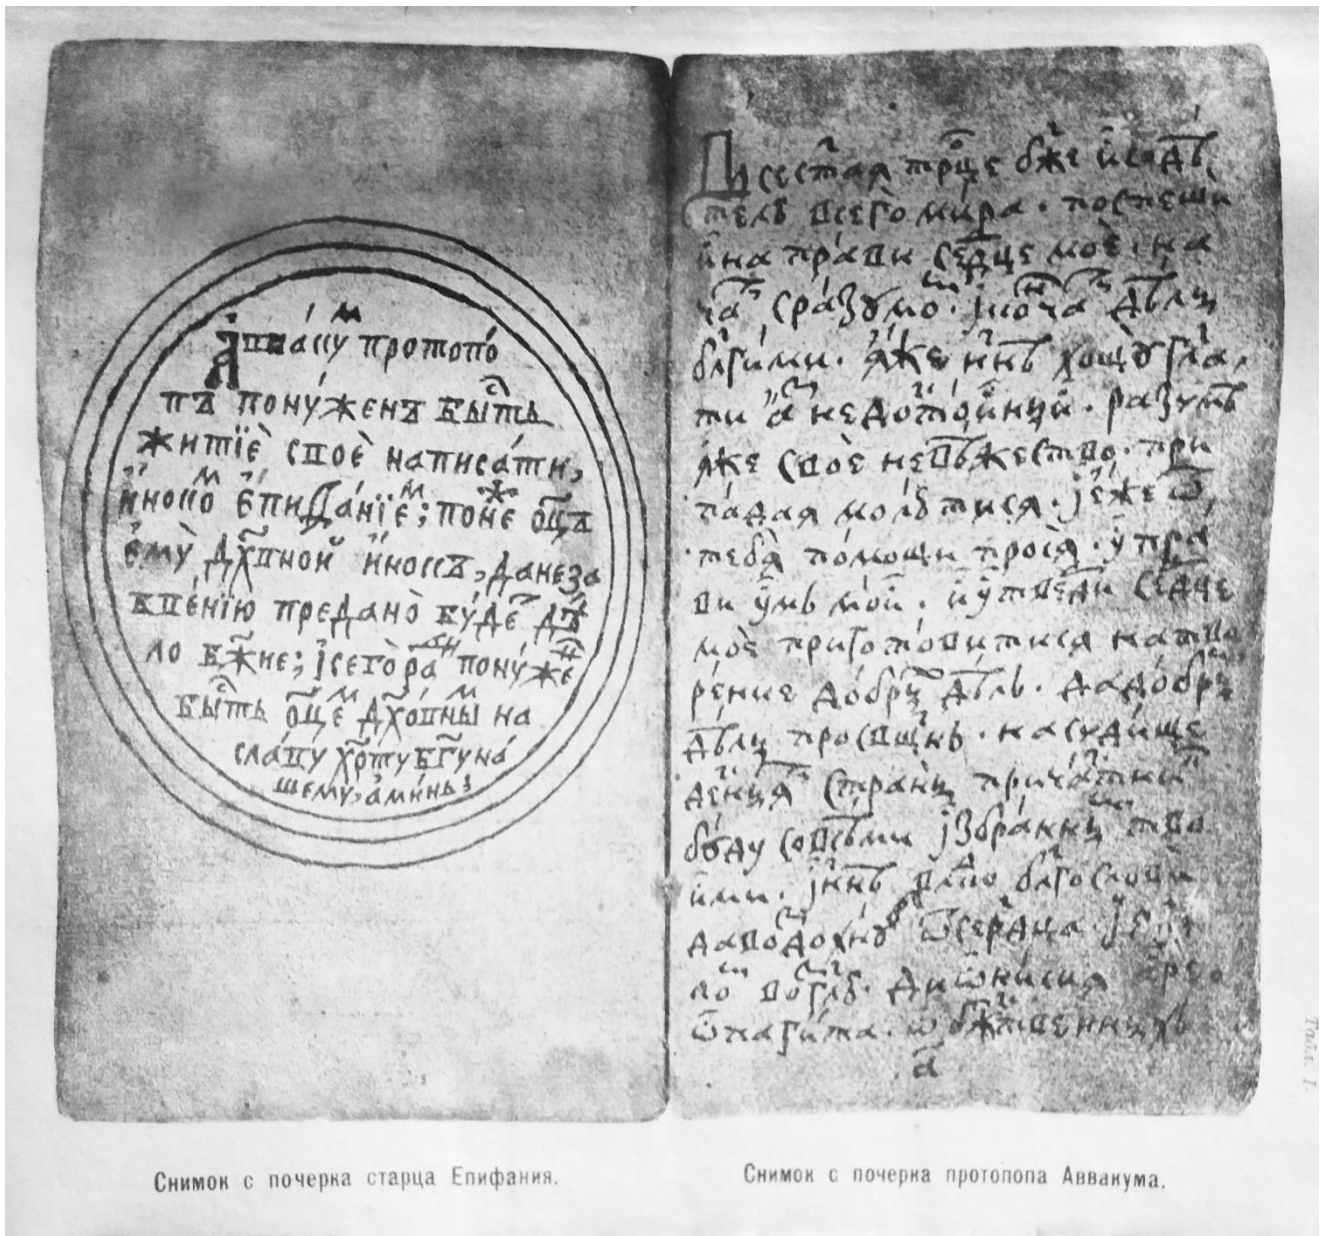 Аввакум протопо
пъ понужен бысть
житие свое написати,
иноком Епифанием; понеж отцъ
ему духовной инокъ, да не за
бвению предано будет дѣ
ло божие; и сего ради понужен
бысть отцем духовным на
славу христу богу на
шему, аминь;
Всесвятая троице боже и содѣ
телю всего мира поспеши
и направи сердце мое на
чати с разумом и кончати дѣлы
благими яже ннѣ хощу глаго
ти аз недостойный разумѣ
я же свое невѣжество при
падая молю ти ся и еже от
тебя помощи прося упра
ви умъ мой и утверди сердце
мое приготовитися на тво
рение добрых дѣлъ да добры
дѣлы просвещен на судище
десныя ти страны причастник
буду со всѣми избранны тво
ими и ннѣ владыко благослови
да воздохну от сердца и язы
ком возглаголю Дионисия Арео
пагита о божественных
а
Снимок с почерка старца Епифания.
Снимок с почерка протопопа Аввакума.
Табл. I.